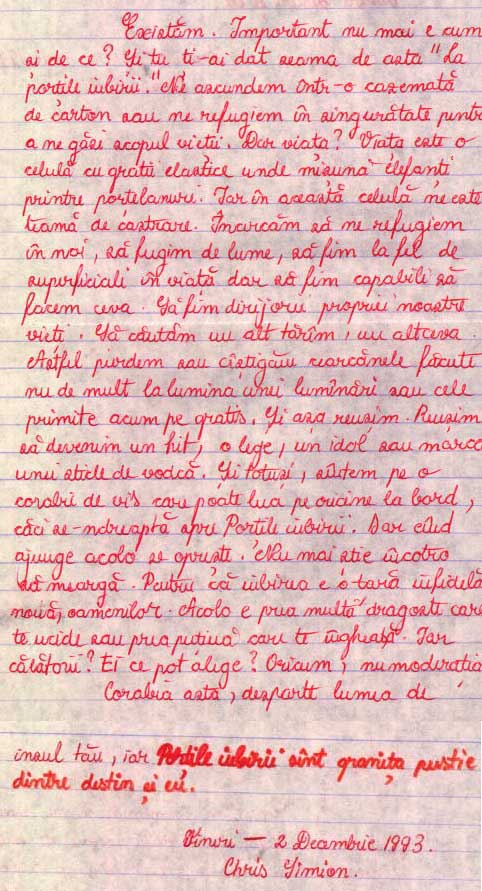 Existăm. Important nu mai e cum
si de ce? Și tu ti-ai dat seama de asta "La
porțile iubirii." Ne ascundem într-o cazemată
de carton sau ne refugiem în singurătate pentru
a ne găsi scopul vietii. Dar viata? Viata este o
celulă cu gratii elastice unde mișună elefanti
printre portelanuri. Iar în această celulă ne este
teamă de castrare. Încercăm să ne refugiem
în noi, să fugim de lume, să fim la fel de
superficiali în viată dar să fim capabili să
facem ceva. Să fim dirijorii propriei noastre
vieti. Să căutăm un alt tărîm, un altceva.
Astfel pierdem sau cîștigăm cearcănele făcute
nu de mult la lumina unei lumînări sau cele
primite acum pe gratis. Și asa reusim. Reusim
să devenim un hit, o lege, un idol sau marca
unei sticle de vodcă. Și totusi, sîntem pe o
corabie de vis care poate lua pe oricine la bord,
căci se-ndreaptă spre Portile iubirii. Dar cînd
ajunge acolo se opreste. Nu mai stie încotro
să meargă. Pentru că iubirea e o tară infidelă
nouă, oamenilor. Acolo e prea multă dragoste care
te ucide sau prea putină care te îngheată. Iar
călătorii? Ei ce pot alege? Oricum, nu moderatia
Corabia asta, desparte lumea de
insul tău, iar Portile iubirii sînt granița pustie
dintre destin și eu.
Vineri — 2 Decembrie 1993.
Chris Simion.